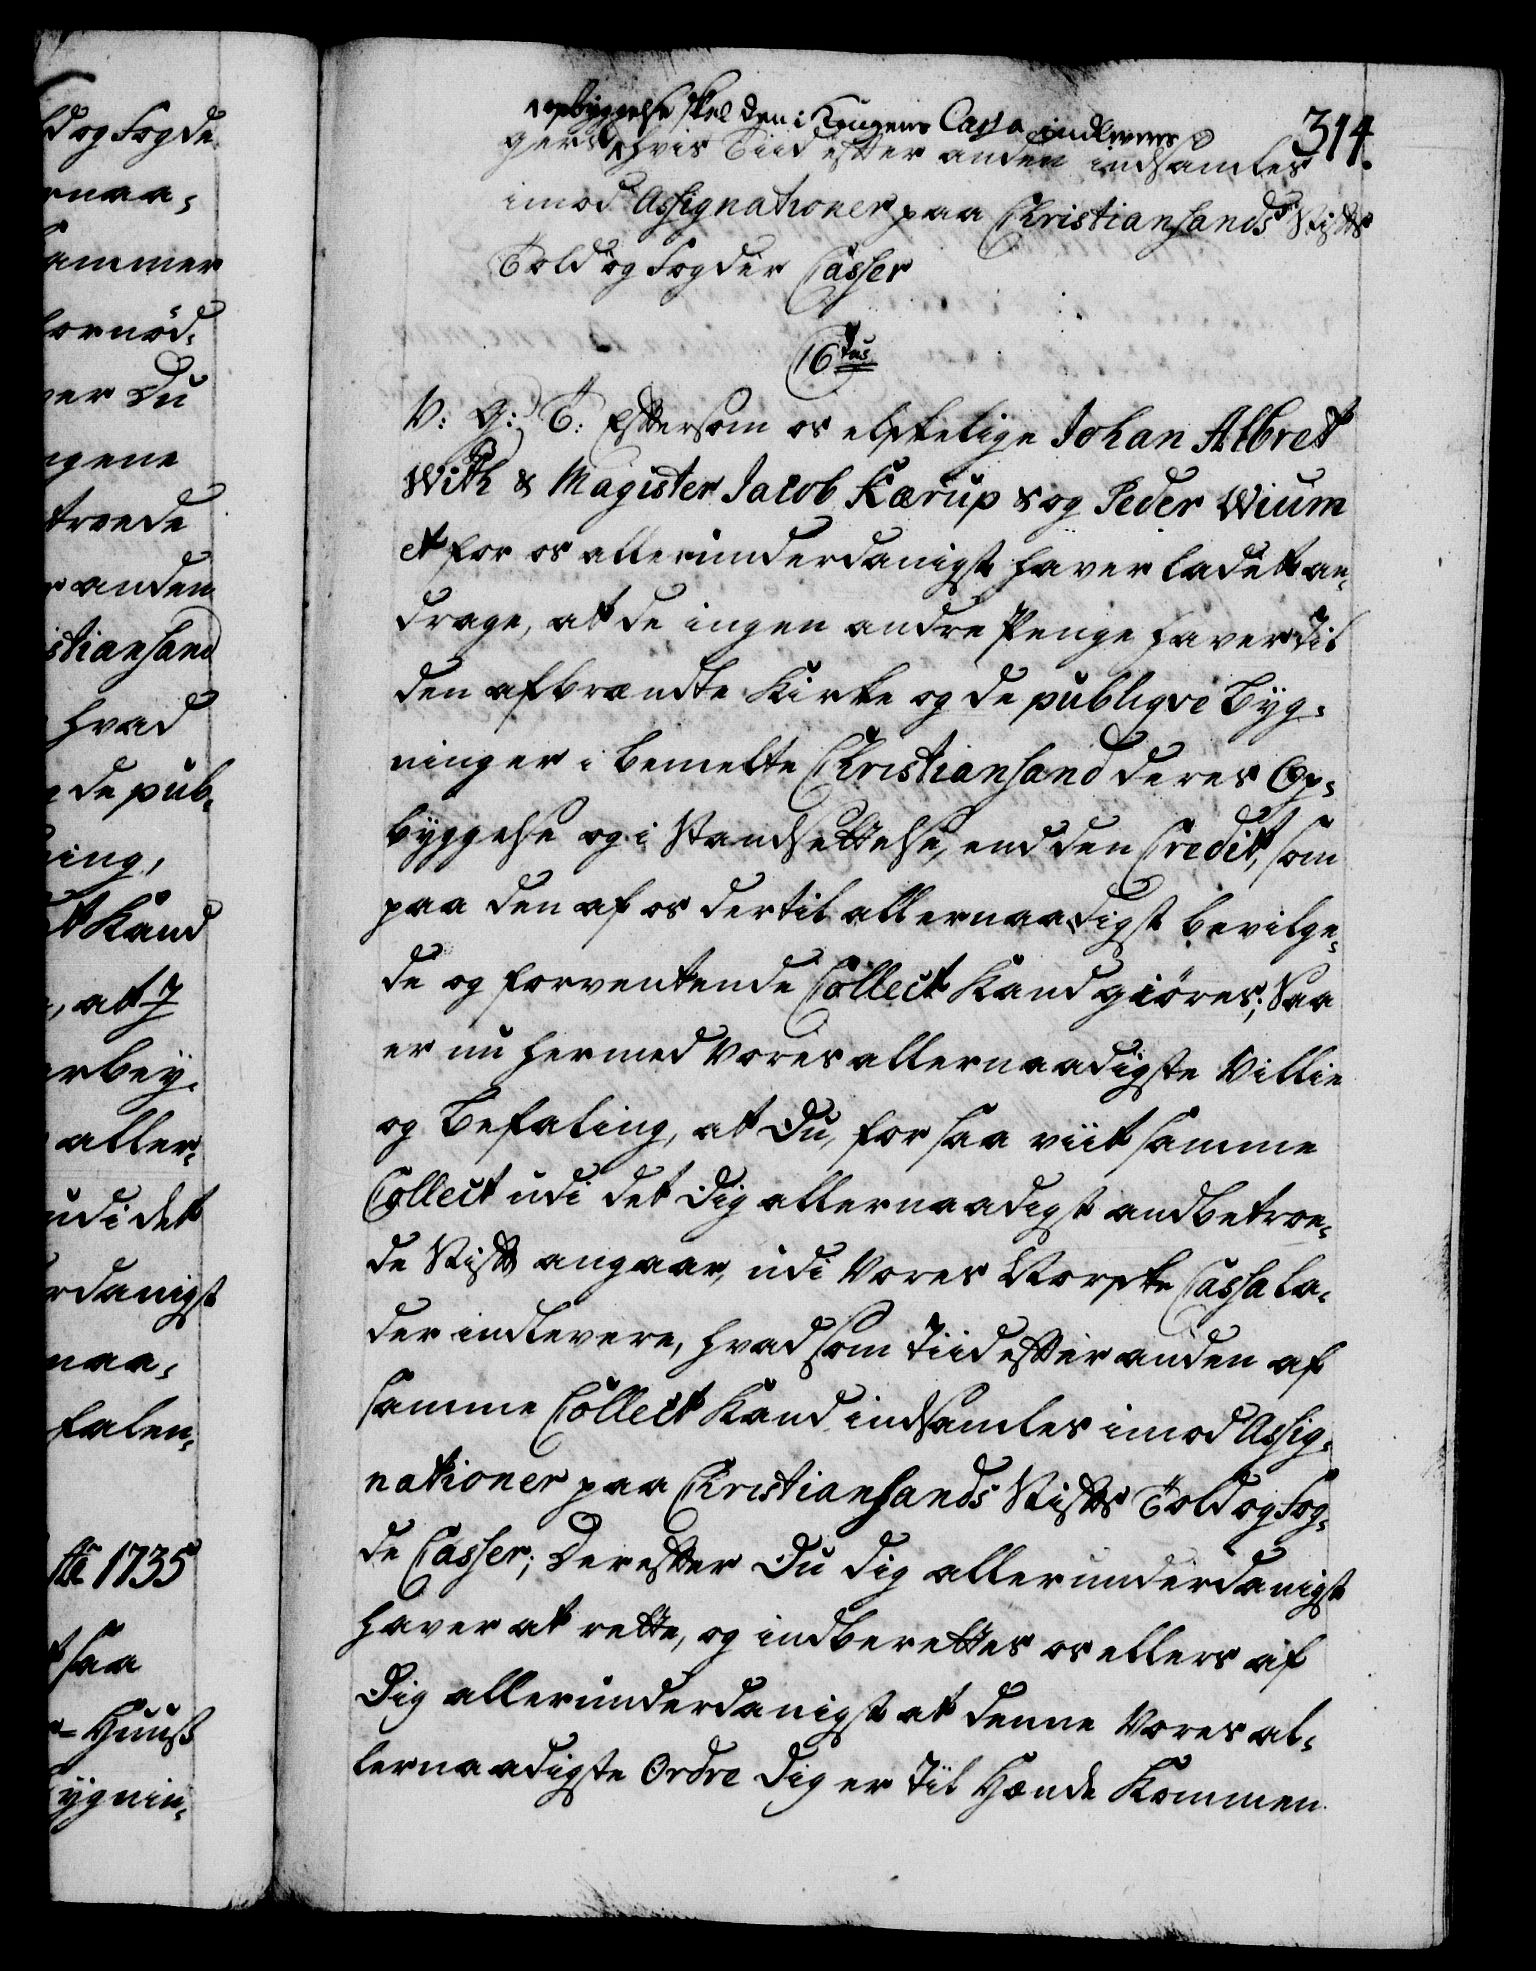 opbyggelse skal den i Kongens Cassa indleveres
314.
gers, hvis Tiid efter anden indsamles
imod Assignationer paa Christiansands Stifts
Told og Fogder Casser
6tus
V: G: T: Eftersom os elskelige Johan Albret
With & Magister Jacob Kærup & og Peder Wium
et for os allerunderdanigst haver ladet an-
drage, at de ingen andre Penge haver til
den afbrændte Kirke og de publiqve Byg-
ninger i bemelte Christiansand deres Op-
byggelse og i Standsettelse, end den Credit, som
paa den af os dertil allernaadigst bevilge-
de og forventende Collect Kand giøres; Saa
er nu hermed Vores allernaadigste Villie
og Befaling, at Du, for saa viit samme
Collect udi det Dig allernaadigst andbetroe-
de Stift angaar, udi Vores Norske Cassa la-
der indlevere, hvad som Tiid efter anden af
samme Collect Kand indsamles imod Assig-
nationer paa Christiansands Stifts Told og Fog-
de Casser; Derefter Du dig allerunderdanigst
haver at rette, og indberettes os ellers af
Dig allerunderdanigst at denne Vores al-
lernaadigste Ordre dig er til Hænde Kommen.
d og Fogde
naa-
ammer
fornød-
er Du
gene
troede
anden
stiansand
hvad
de pub-
ing,
t Kand
, at 7
rbey-
aller-
udi det
rdanigst
naa-
falen-
1735
saa
- Huuß
ygnin-